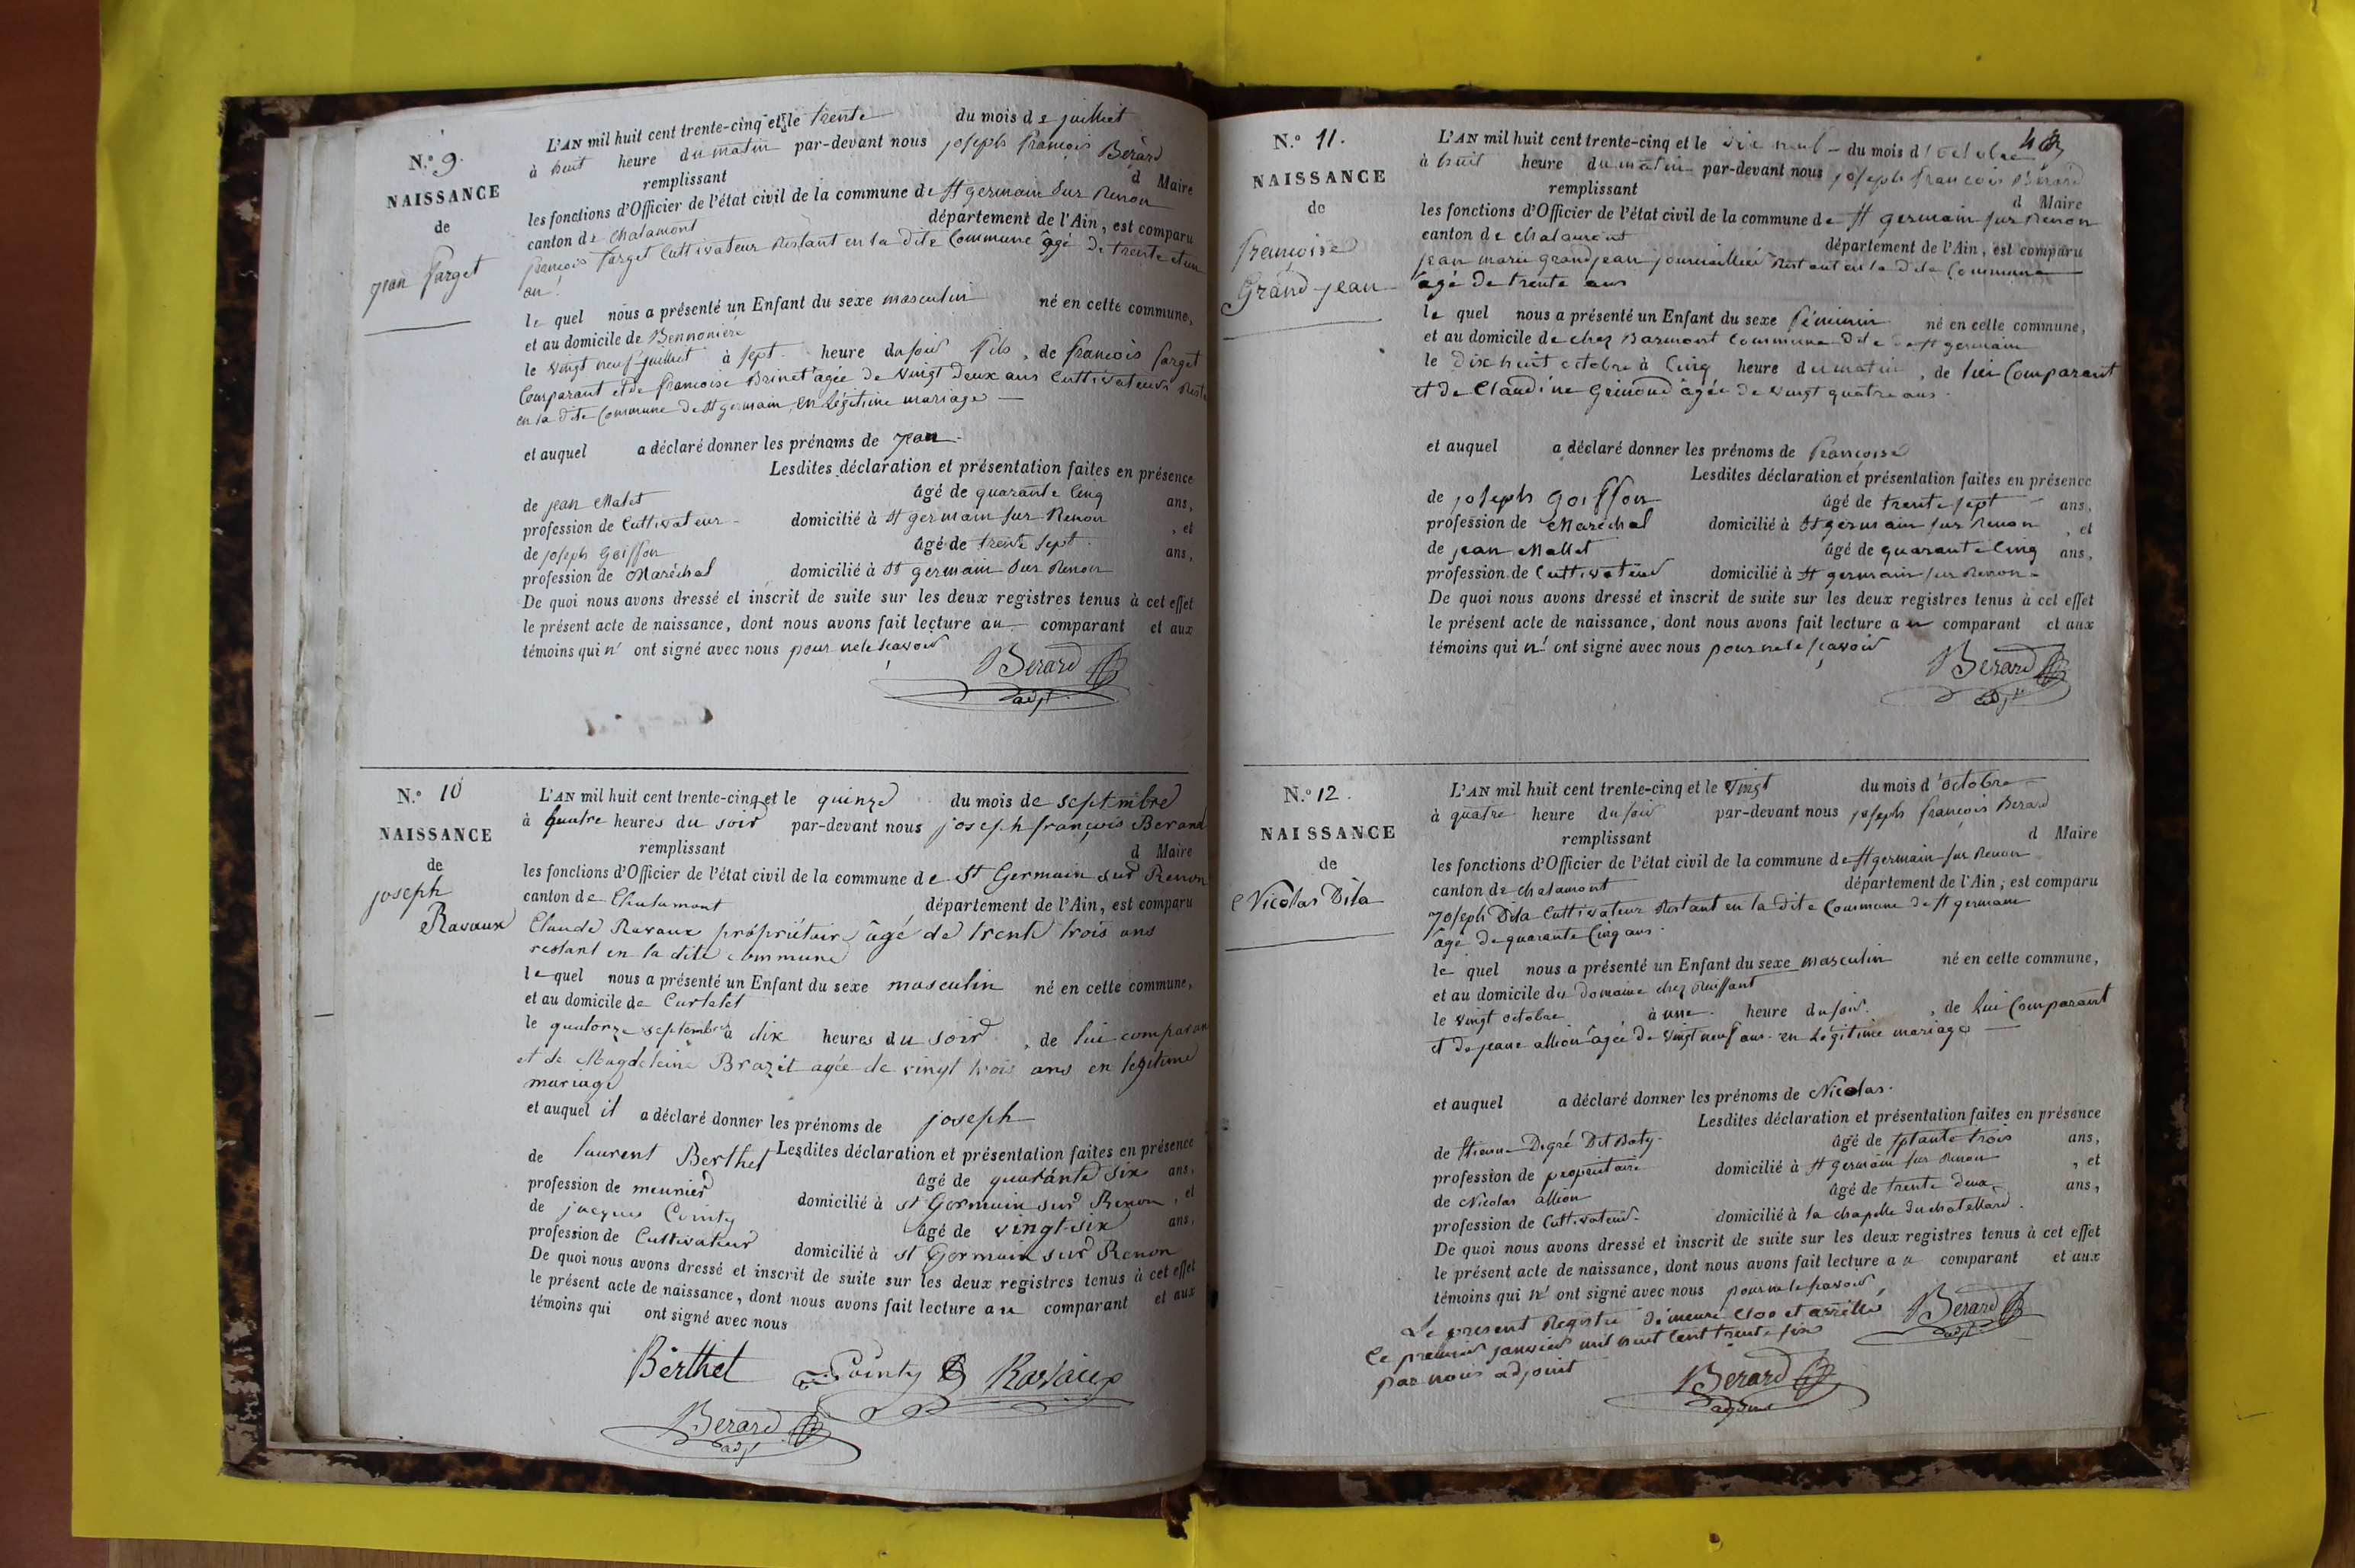 N.º 9.
NAISSANCE
de
jean farget
L'AN mil huit cent trente-cinq et le trente du mois de juilliet
à huit heure du matin par-devant nous joseph françois Bérard
remplissant d Maire
les fonctions d'Officier de l'état civil de la commune de St germain sur Renon
canton de chalamont département de l'Ain, est comparu
françois farget Cultivateur Restant en la dite Commune âgé de trente et un
an.
le quel nous a présenté un Enfant du sexe masculin né en cette commune,
et au domicile de Bennoniere
le vingt neuf juilliet à sept heure du soir fils, de francois farget
Comparant et de francoise Brinet agée de vingt deux ans Cultivateurs Rest
en la dite Commune de St germain, en Légitime mariage
et auquel a déclaré donner les prénoms de jean.
Lesdites déclaration et présentation faites en présence
de jean Malet âgé de quarante Cinq ans,
profession de Cultivateur domicilié à St germain sur Renon , et
de joseph Goiffon âgé de trente sept ans,
profession de Maréchal domicilié à St germain sur Renon
De quoi nous avons dressé et inscrit de suite sur les deux registres tenus à cet effet
le présent acte de naissance, dont nous avons fait lecture au comparant et aux
témoins qui n' ont signé avec nous pour ne le sçavoir
Berard
adjt
N.º 10
NAISSANCE
de
joseph
Ravaux
L'AN mil huit cent trente-cinq et le quinze du mois de septembre
à quatre heures du soir par-devant nous joseph françois Berard
remplissant d Maire
les fonctions d'Officier de l'état civil de la commune de St Germain sur Renon
canton de Chalamont département de l'Ain, est comparu
Claude Ravaux propriétaire âgé de trente trois ans
restant en la dite commune
le quel nous a présenté un Enfant du sexe masculin né en cette commune,
et au domicile de Curtelet
le quatorze septembre à dix heures du soir , de lui comparan
et de Magdeleine Brazit agée de vingt trois ans en legitime
mariage
et auquel il a déclaré donner les prénoms de joseph
Lesdites déclaration et présentation faites en présence
de laurent Berthet âgé de quarante six ans,
profession de meunier domicilié à st Germain sur Renon , et
de jacques Cointy âgé de vingt-six ans,
profession de Cultivateur domicilié à st Germain sur Renon
De quoi nous avons dressé et inscrit de suite sur les deux registres tenus à cet effet
le présent acte de naissance, dont nous avons fait lecture au comparant et aux
témoins qui ont signé avec nous
Berthet Cointy Ravaux
Berard
adjt
N.º 11.
NAISSANCE
de
françoise
Grand-jean
L'AN mil huit cent trente-cinq et le dix neuf du mois d'octobre
à huit heure du matin par-devant nous joseph françois Bérard
remplissant d Maire
les fonctions d'Officier de l'état civil de la commune de St germain sur Renon
canton de chalamont département de l'Ain, est comparu
jean marie grandjean journaillier Restant en la dite Commune
âgé de trente ans
le quel nous a présenté un Enfant du sexe féminin né en cette commune,
et au domicile de chez Barmont Commune dite de St germain
le dix huit octobre à Cinq heure du matin , de lui Comparant
et de Claudine Geimond âgée de vingt quatre ans.
et auquel a déclaré donner les prénoms de francoise
Lesdites déclaration et présentation faites en présence
de joseph goiffon âgé de trente sept ans,
profession de Maréchal domicilié à St germain sur Renon , et
de jean Mallet âgé de quarante Cinq ans,
profession de Cultivateur domicilié à St germain sur Renon
De quoi nous avons dressé et inscrit de suite sur les deux registres tenus à cet effet
le présent acte de naissance, dont nous avons fait lecture au comparant et aux
témoins qui n' ont signé avec nous pour ne le sçavoir
Berard
adjt
N.º 12.
NAISSANCE
de
Nicolas Dila
L'AN mil huit cent trente-cinq et le vingt du mois d'octobre
à quatre heure du soir par-devant nous joseph françois Berard
remplissant d Maire
les fonctions d'Officier de l'état civil de la commune de St germain sur Renon
canton de chalamont département de l'Ain, est comparu
joseph Dila Cultivateur Restant en la dite Commune de St germain
âgé de quarante Cinq ans.
le quel nous a présenté un Enfant du sexe masculin né en cette commune,
et au domicile du domaine chez Ruissant
le vingt octobre à une heure du soir , de lui Comparant
et de jeane allion âgée de vingt neuf ans. en Légitime mariage
et auquel a déclaré donner les prénoms de Nicolas.
Lesdites déclaration et présentation faites en présence
de Etienne Degré Dit Baty âgé de septante trois ans,
profession de propriétaire domicilié à St germain sur Renon , et
de Nicolas allion âgé de trente deux ans,
profession de Cultivateur domicilié à la chapelle du chatellard.
De quoi nous avons dressé et inscrit de suite sur les deux registres tenus à cet effet
le présent acte de naissance, dont nous avons fait lecture au comparant et aux
témoins qui n' ont signé avec nous pour ne le sçavoir
Le present Registre demeuré Cloo et arrêtté Berard
Le premier janvier mil huit Cent trente six adjt
par nous adjoint
Berard
adjoint